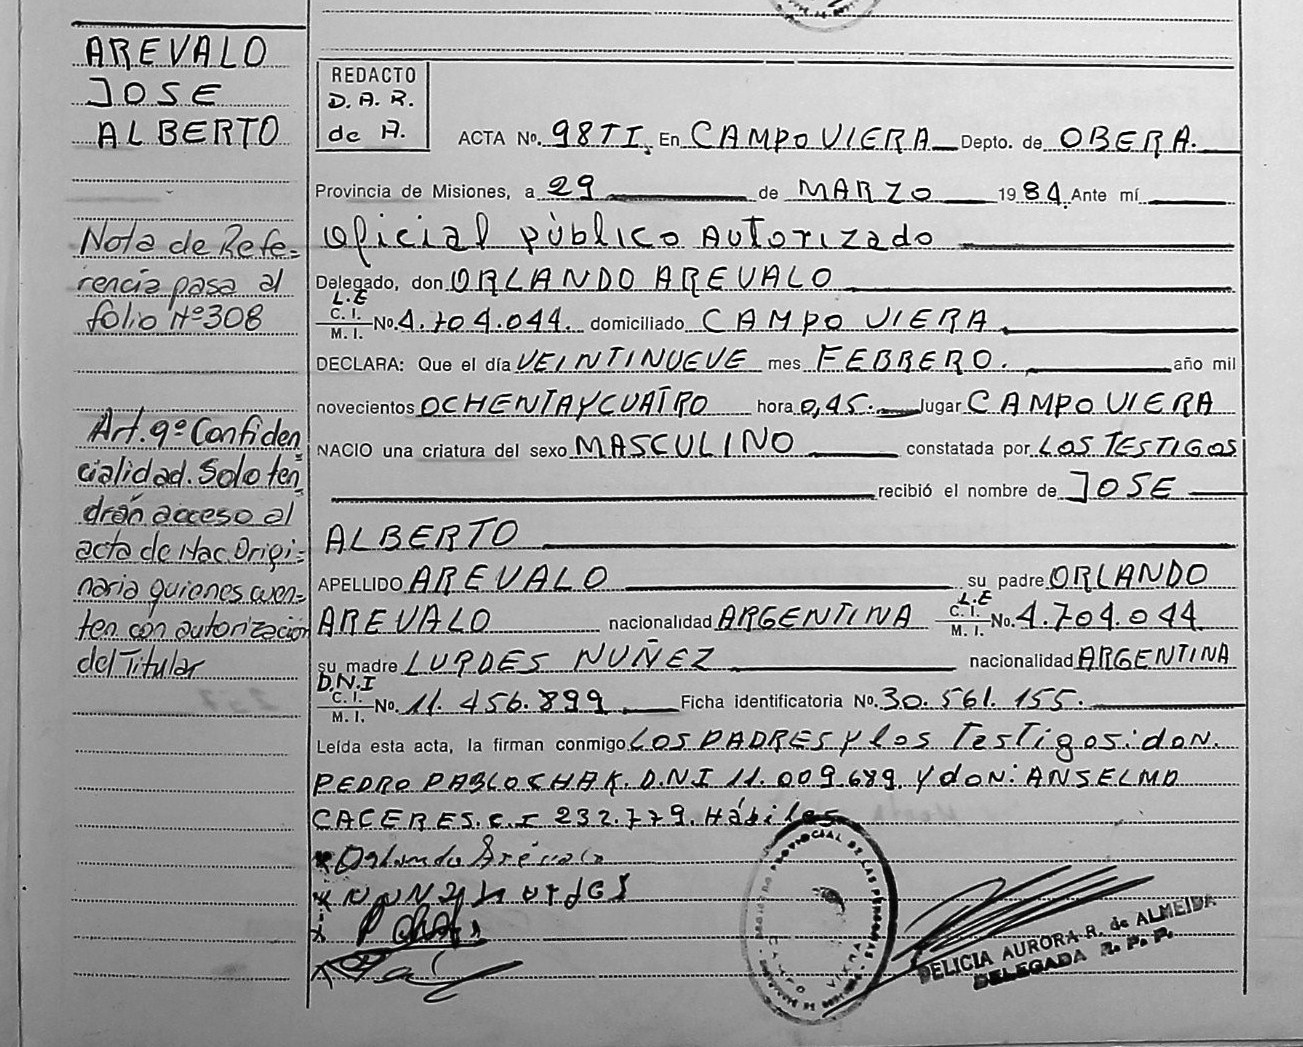 AREVALO
JOSE
ALBERTO
Nota de Refe=
rencia pasa al
folio Nº 308
Art. 9º Confiden
cialidad. Solo ten
drán acceso al
acta de Nac. Origi=
naria quienes cuen=
ten con autorización
del Titular
REDACTO
D. A. R.
de A.
ACTA No. 98TI. En CAMPO VIERA Depto. de OBERA.
Provincia de Misiones, a 29 de MARZO 1984 Ante mí
Oficial público Autorizado
Delegado, don ORLANDO AREVALO
L.E
C. I.
M. I. No. 4.704.044. domiciliado CAMPO VIERA
DECLARA: Que el día VEINTINUEVE mes FEBRERO. año mil
novecientos OCHENTAYCUATRO hora 0,45. lugar CAMPO VIERA
NACIO una criatura del sexo MASCULINO constatada por LOS TESTIGOS
recibió el nombre de JOSE
ALBERTO
APELLIDO AREVALO su padre ORLANDO
AREVALO nacionalidad ARGENTINA L.E C. I. M. I. No. 4.704.044
su madre LURDES NUÑEZ nacionalidad ARGENTINA
D.N.I
C. I.
M. I. No. 11. 456. 899 Ficha identificatoria No. 30. 561. 155.
Leída esta acta, la firman conmigo LOS PADRES y los Testigos: don.
PEDRO PABLO CHAK. D.N.I 11.009.689. Y don: ANSELMO
CACERES. C.I 232.779. Hábiles
Orlando Arévalo
PROVINCIAL DE LAS PERSONAS
CAMPO VIERA
DELICIA AURORA R. de ALMEIDA
DELEGADA R. P. P.